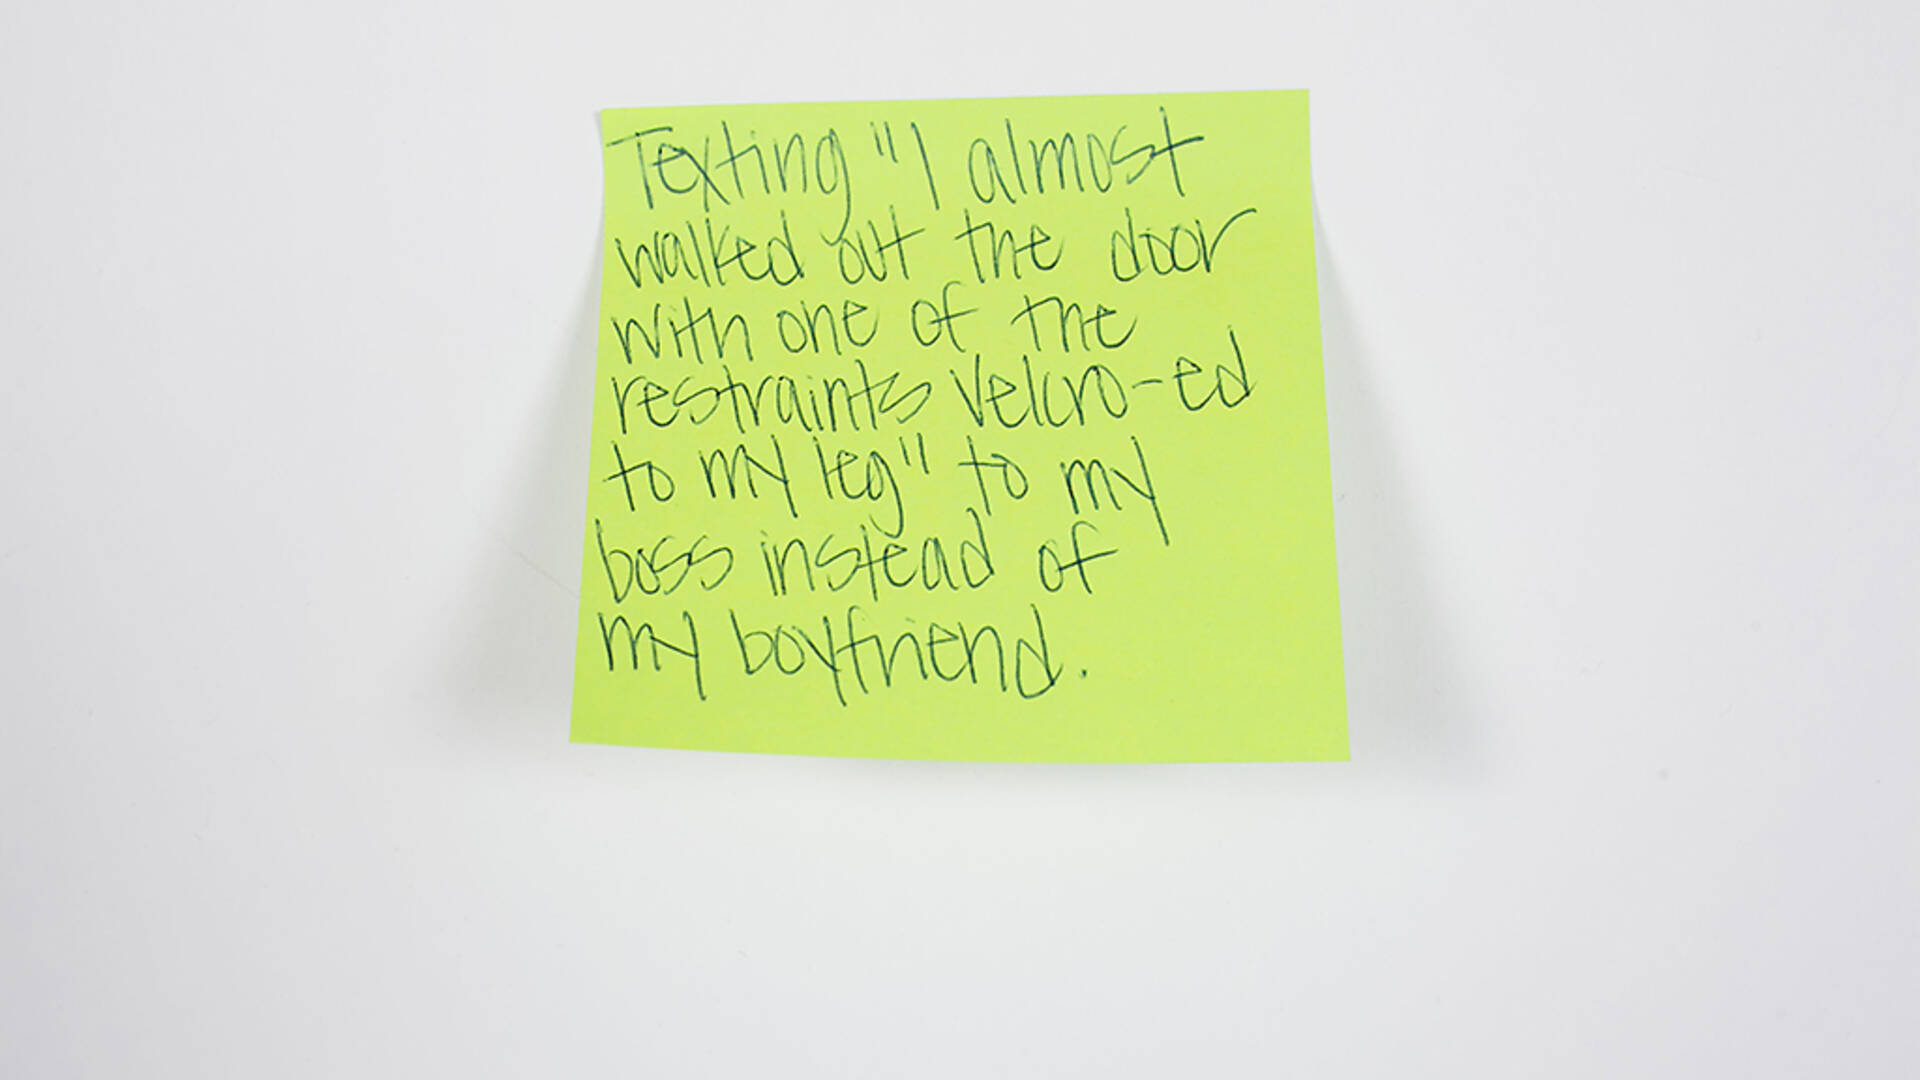 Texting "I almost
walked out the door
with one of the
restraints Velcro-ed
to my leg" to my
boss instead of
my boyfriend.